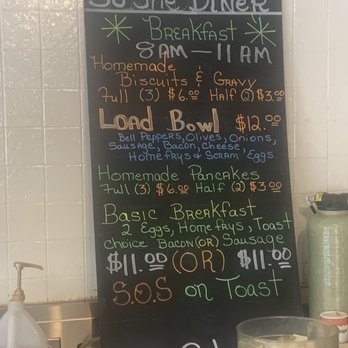 The Diner
Breakfast
8AM — 11 AM
Homemade
Biscuits & Gravy
Full (3) $6.00 Half (2) $3.00
Load Bowl $12.00
Bell Peppers, Olives, Onions,
Sausage, Bacon, Cheese,
Homefrys & Scram Eggs
Homemade Pancakes
Full (3) $6.00 Half (2) $3.00
Basic Breakfast
2 Eggs, Homefrys, Toast
choice Bacon (OR) Sausage
$11.00 (OR) $11.00
S.O.S on Toast